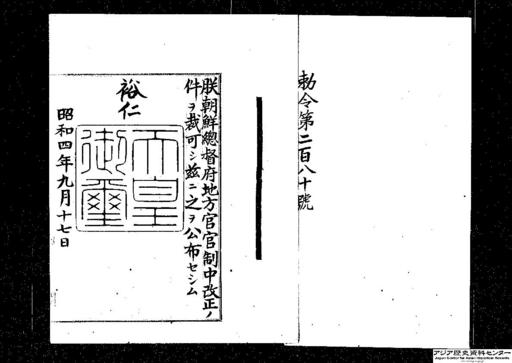 勅令第二百八十號
朕朝鮮總督府地方官官制中改正ノ
件ヲ裁可シ茲ニ之ヲ公布セシム
裕仁
天皇
御璽
昭和四年九月十七日
アジア歴史資料センター
Japan Center for Asian Historical Records